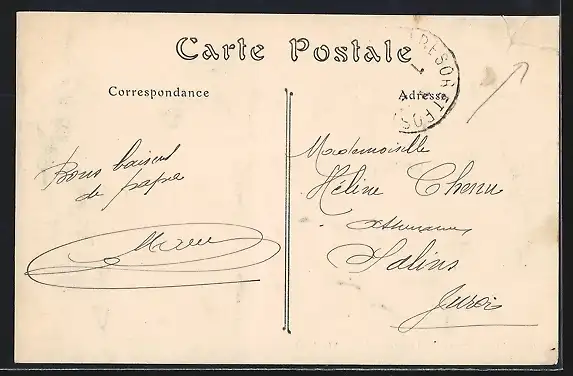 Carte Postale
Correspondance
Adresse
TRESOR ET POSTES
Bons baisers
de papa
Mademoiselle
Héline Chenu
Salins
Jura